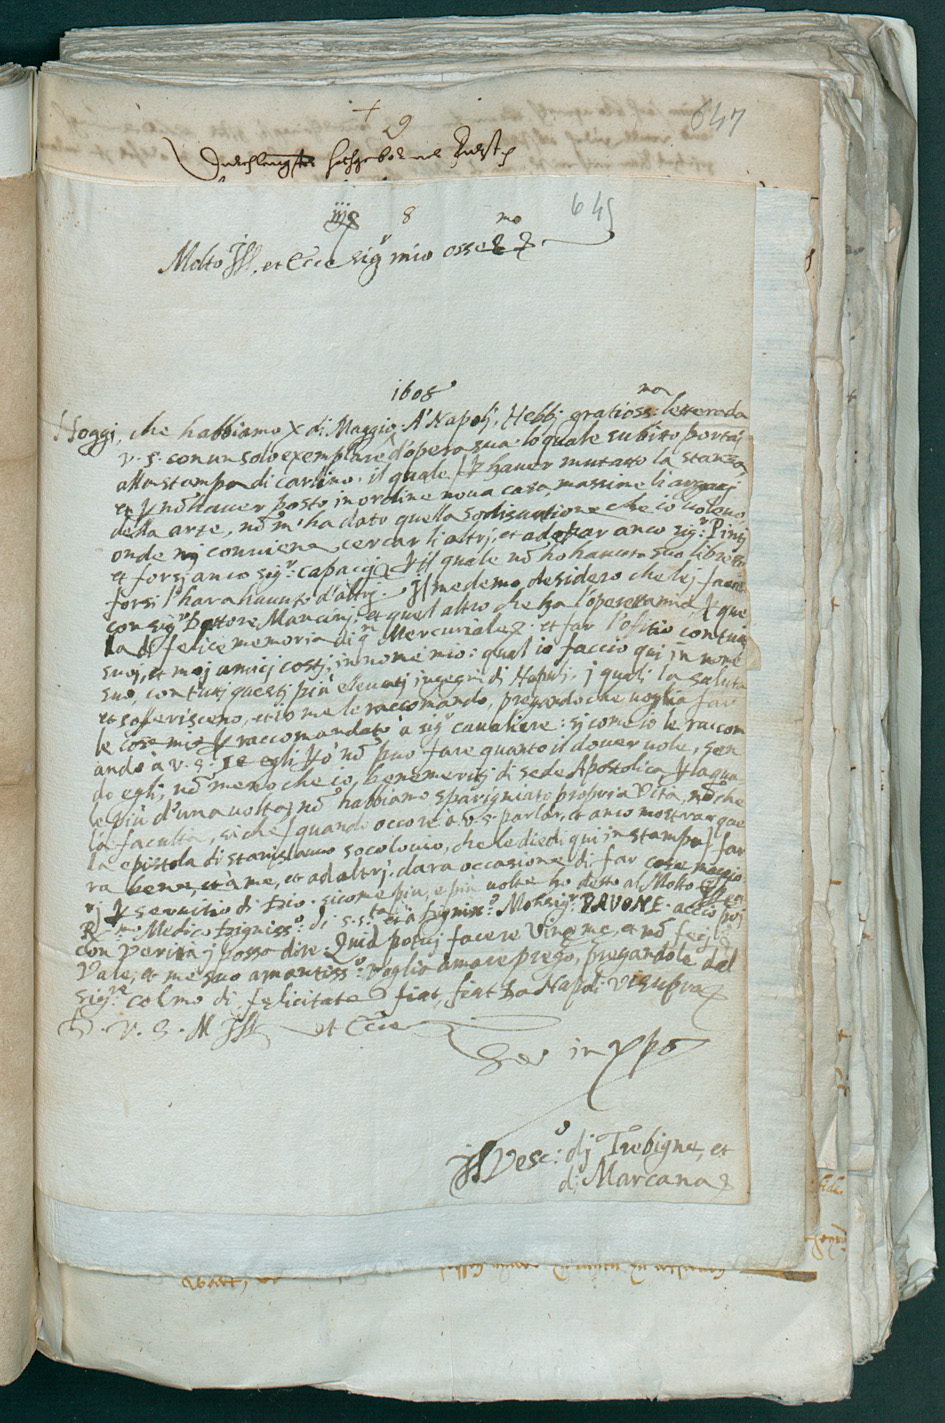 647
+
Durchleuchtigster hochgeborner Furst
645
8
Molto Ill. et Ecc.e sig.r mio osse.mo
1608
Hoggi, che habbiamo X di Maggio. A' Napolj, Hebbj gratioss.ma lettera da
v. s. con un solo exemplare d'opera sua. lo quale subito portaj
alla stampa di carlino. il quale p hauer mutato la stanza,
et p nō hauer posto in ordine noua casa, massime li
della arte, nō m'ha dato quella sodisfattione che io uoleuo
onde mj conuiene cercar li altrj, et adoprar anco sig.r Pinij
et forsj anco sig.r capacij il quale nō ho hauuto suo libretto
forsi l'hara hauuto d'altrj. Il medemo desidero che lej faccia
con sig.r Dottore Mancinj: et quel altro che ha l'operetta mia, p que
la di felice memoria di q.m Mercuriale: et far l'ofitio con tutj
suoj, et mej amicj costj, in nome mio: qual io faccio qui in nome
suo, con tutj questj più eleuatj ingegni di Napoli. i quali la saluta
et sofferiscono, et io me le raccomando, pregando che uoglia far
le cose mie p raccomandate à sig.r caualiere: si come io le raccom
ando à v. s. se egli può nō puo fare quanto il douer uole, sen
do egli, nō meno che io, benemeritj di sede Apostolica, p la qua
le più d'una uolta nō habbiamo sparigniato propria vita, nō che
la facultà, si che quando occore à v. s. parlar, et anco mostrar que
la epistola di stanislauo socolouio, che le diedi qui in stampa far
ra bene, et à me, et ad altrj. dara occasione di far cose maggio
rj p seruitio di Dio. sicome piu, e più uolte ho detto al Molto Ill. et
R.mo Medico digniss.o di S. S.tà et à digniss.o Monsig.r PAVONE. acciò poj
con verità j posso dire: Quid potuj facere uineę meę, et nō feci
Vale, et me suo amantiss.o uoglia amare prego, pregandole dal
Sig.re colmo di felicitate fiat, fiat Da Napoli vt supra
D. V. S. M Ill. et Ecc.e
Ser in Xpō
Il Vesc.o dj Trebigne, et
di Marcana